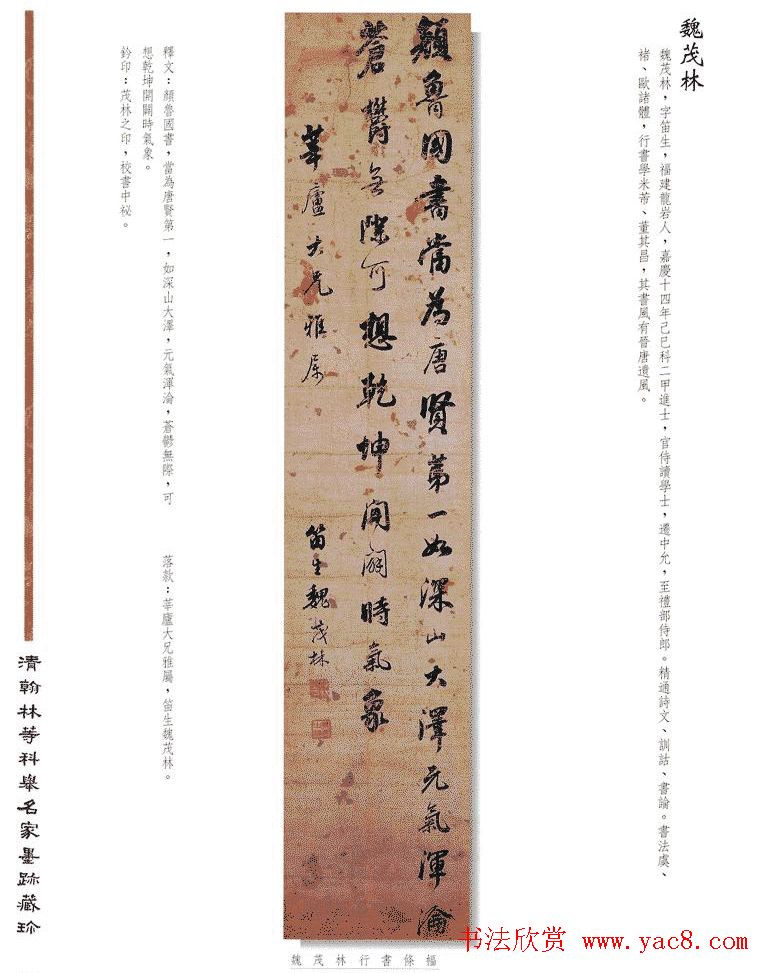 魏茂林
魏茂林，字笛生，福建龍岩人，嘉慶十四年己巳科二甲進士，官侍讀學士，遷中允，至禮部侍郎。精通詩文、訓詁、書論。書法虞、
褚、歐諸體，行書學米芾、董其昌，其書風有晉唐遺風。
顏魯國書當為唐賢第一如深山大澤元氣渾淪
蒼鬱無際可想乾坤開闢時氣象
莘廬大兄雅屬
笛生魏茂林
釋文：顏魯國書，當為唐賢第一，如深山大澤，元氣渾淪，蒼鬱無際，可
想乾坤開闢時氣象。
落款：莘廬大兄雅屬，笛生魏茂林。
鈐印：茂林之印，校書中秘。
清翰林等科舉名家墨跡藏珍
魏茂林行書條幅
书法欣赏 www.yac8.com